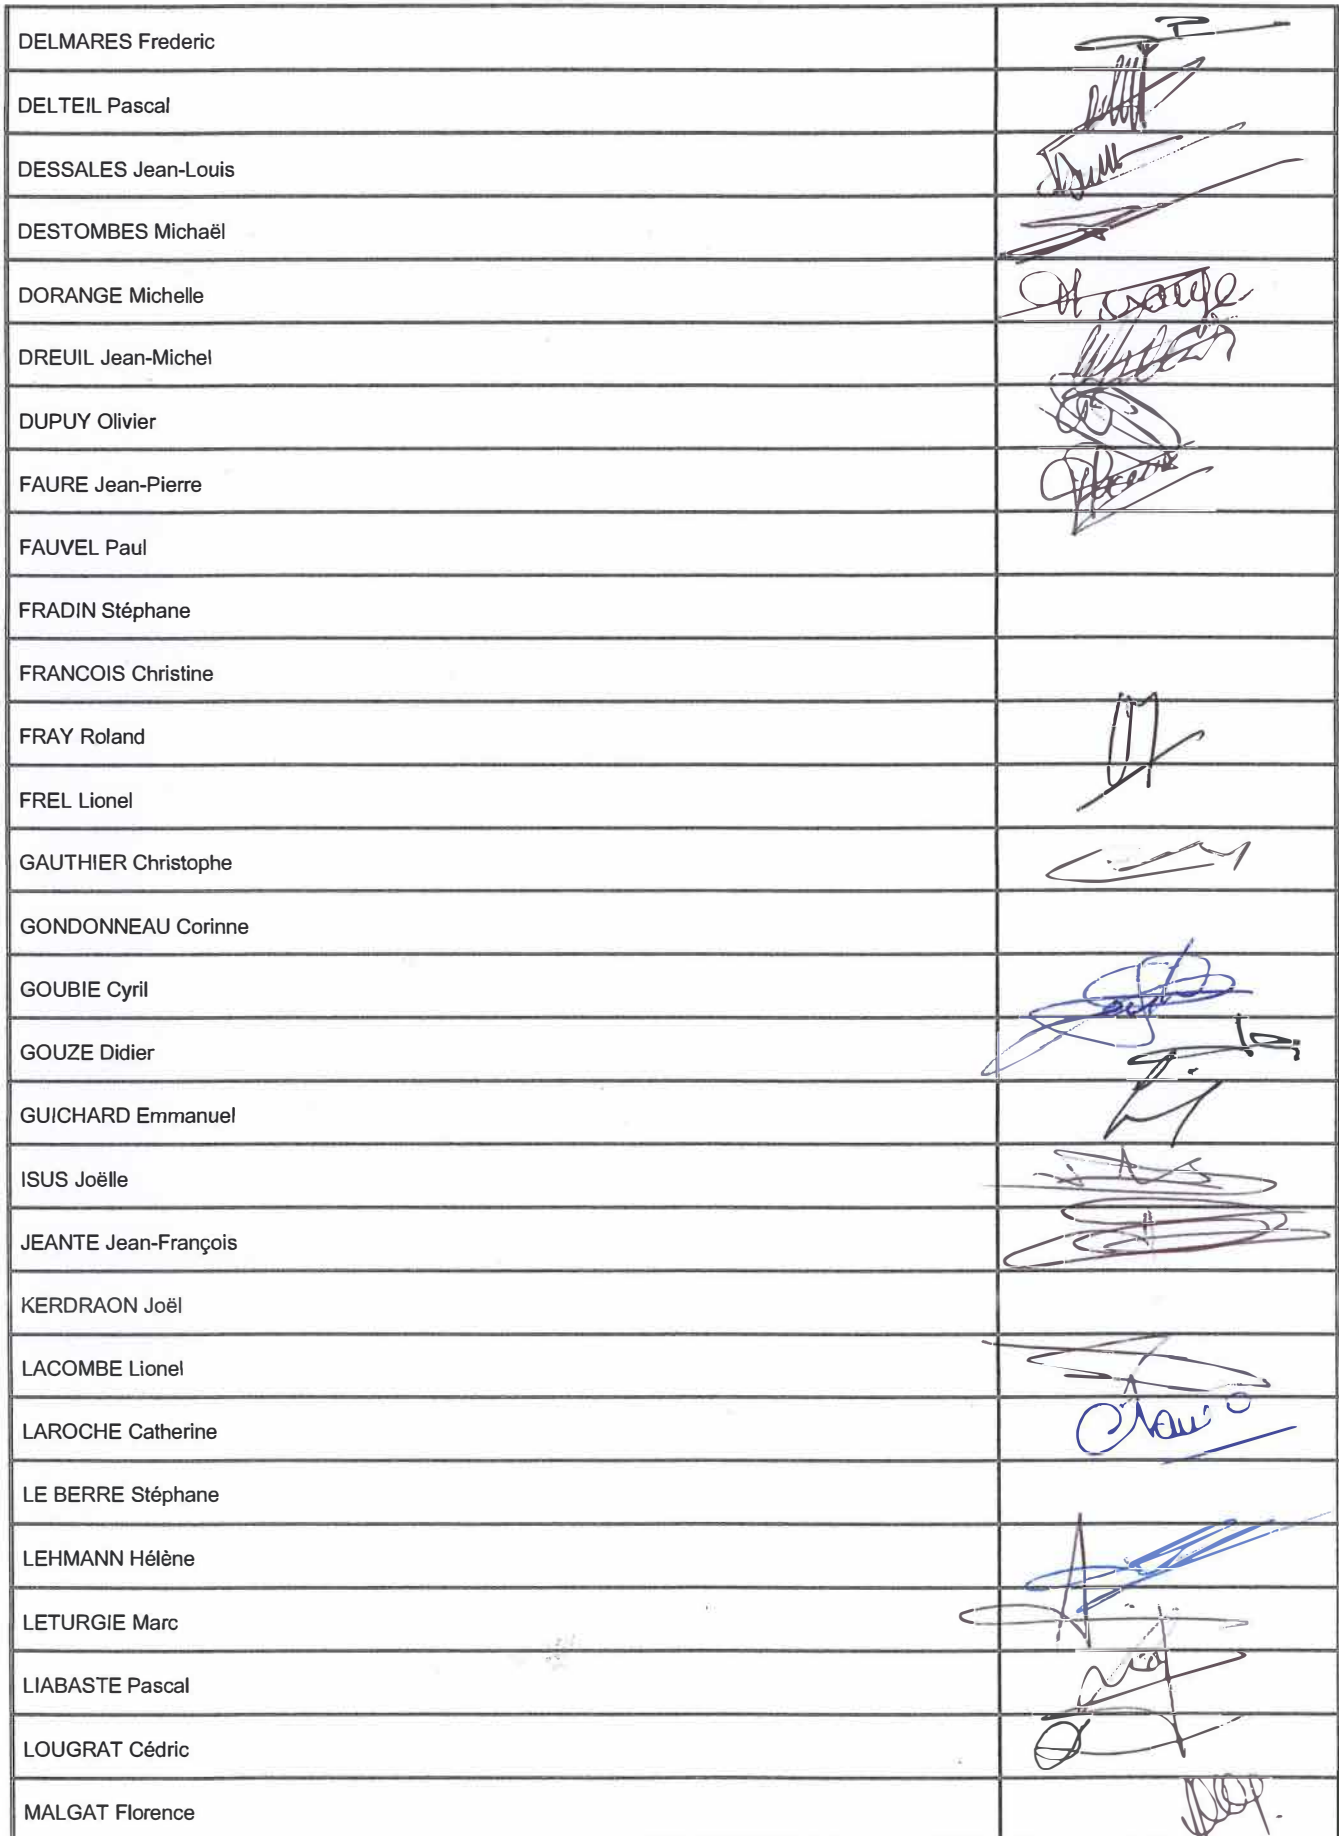 DELMARES Frederic
DELTEIL Pascal
DESSALES Jean-Louis
DESTOMBES Michaël
DORANGE Michelle
DREUIL Jean-Michel
DUPUY Olivier
FAURE Jean-Pierre
FAUVEL Paul
FRADIN Stéphane
FRANCOIS Christine
FRAY Roland
FREL Lionel
GAUTHIER Christophe
GONDONNEAU Corinne
GOUBIE Cyril
GOUZE Didier
GUICHARD Emmanuel
ISUS Joëlle
JEANTE Jean-François
KERDRAON Joël
LACOMBE Lionel
LAROCHE Catherine
LE BERRE Stéphane
LEHMANN Hélène
LETURGIE Marc
LIABASTE Pascal
LOUGRAT Cédric
MALGAT Florence